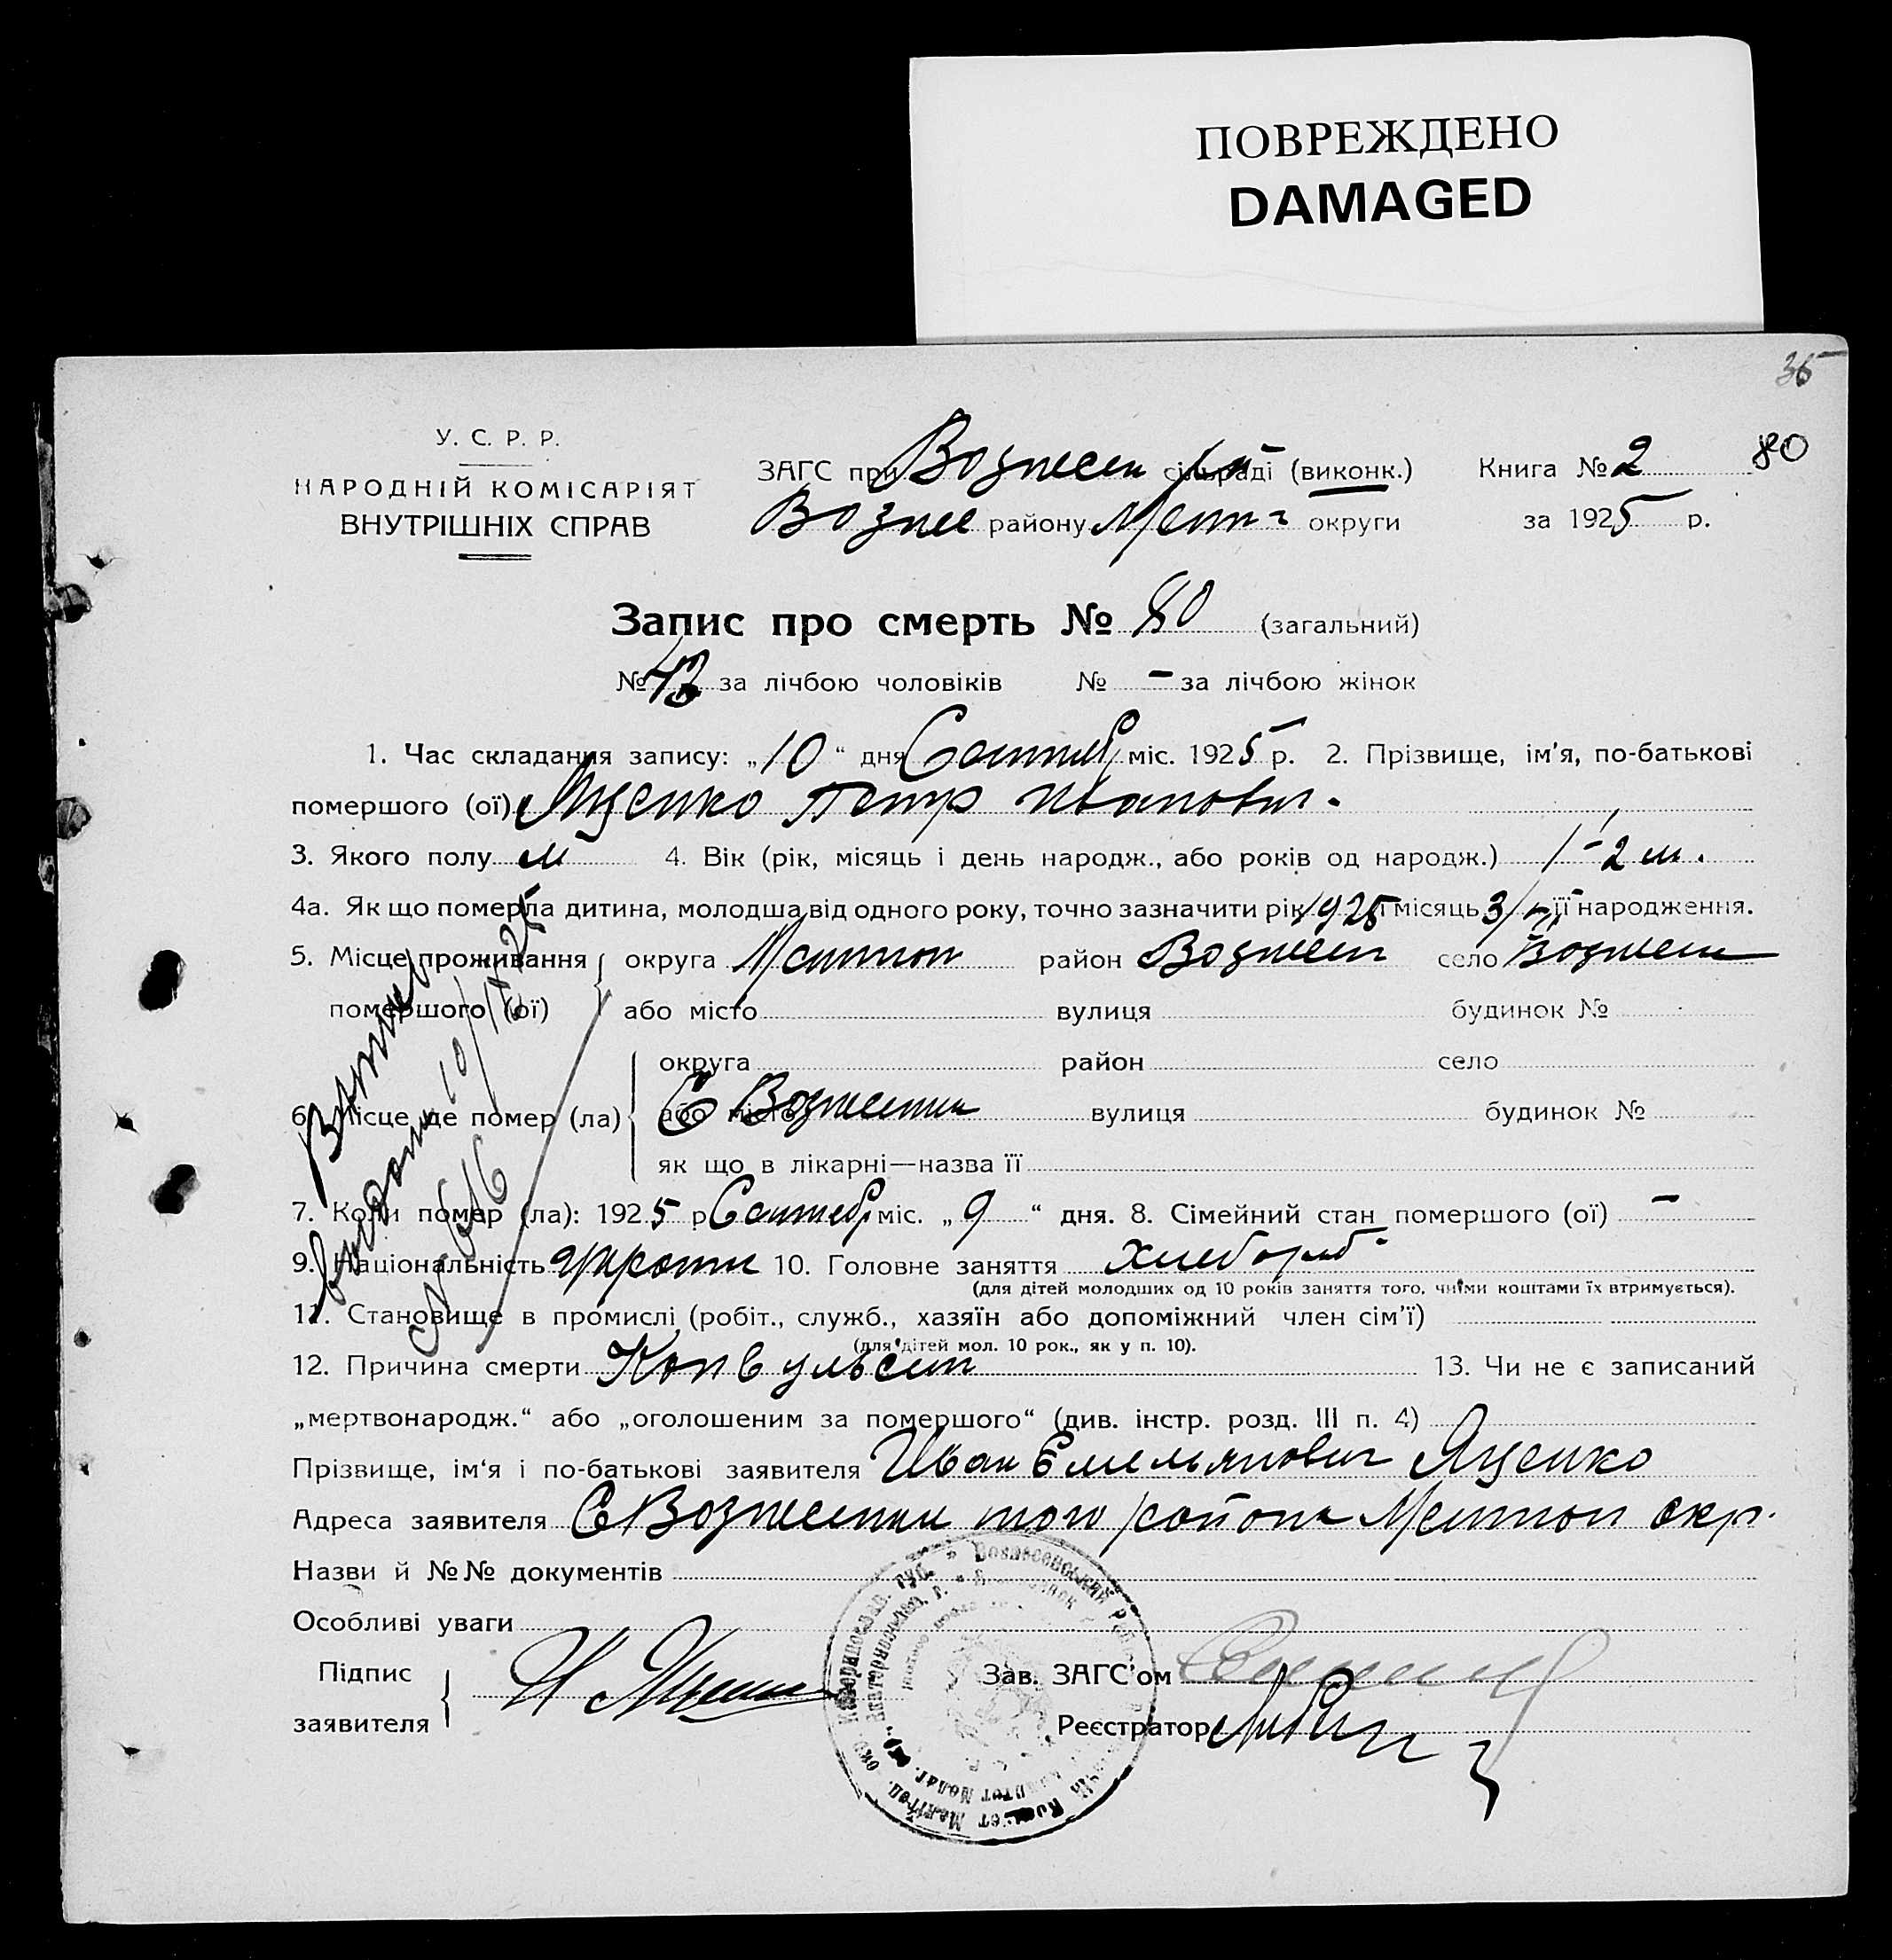 ПОВРЕЖДЕНО
DAMAGED
35
80
У. С. Р. Р.
НАРОДНІЙ КОМІСАРІЯТ
ВНУТРІШНІХ СПРАВ
ЗАГС при Вознесен сільраді (виконк.) Книга № 2
Вознес району Мелит округи за 1925 р.
Запис про смерть № 80 (загальний)
№ 43 за лічбою чоловіків № - за лічбою жінок
1. Час складання запису: „10“ дня Сентяб міс. 1925 р. 2. Прізвище, ім'я, по-батькові
помершого (ої) Яценко Петр Иванович.
3. Якого полу м 4. Вік (рік, місяць і день народж., або років од народж.) 2 м.
4а. Як що померла дитина, молодша від одного року, точно зазначити рік 1925 і місяць 3/ її народження.
5. Місце проживання помершого (ої) округа Мелитоп район Вознесен село Вознесен
або місто вулиця будинок №
6. Місце де помер (ла) округа район село
або місто С Вознесенка вулиця будинок №
як що в лікарні—назва її
7. Коли помер (ла): 1925 р Сентябр міс. „9“ дня. 8. Сімейний стан помершого (ої) -
9. Національність 10. Головне заняття хлебороб
(для дітей молодших од 10 років заняття того, чиїми коштами їх втримується).
11. Становище в промислі (робіт., служб., хазяїн або допоміжний член сім'ї)
(для дітей мол. 10 рок., як у п. 10).
12. Причина смерти Конвульсии 13. Чи не є записаний
„мертвонародж.“ або „оголошеним за помершого“ (див. інстр. розд. III п. 4)
Прізвище, ім'я і по-батькові заявителя Иван Емельянович Яценко
Адреса заявителя С Вознесенки того района Мелитоп окр.
Назви й №№ документів
Особливі уваги
Підпис заявителя И Яценко
Зав. ЗАГС'ом
Реєстратор